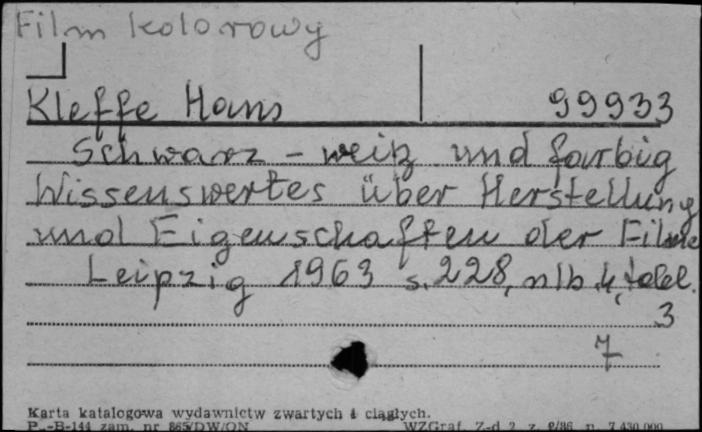 Film kolorowy
Kleffe Hans 99933
Schwarz - weiß und farbig
Wissenswertes über Herstellung
und Eigenschaften der Filme
Leipzig 1963 s. 228, nlb. 4, tabl.
3
7
Karta katalogowa wydawnictw zwartych i ciągłych.
P.-B-144 zam. nr 865/DW/ON WZGraf. Z-d 2 z. n. 7.430.000